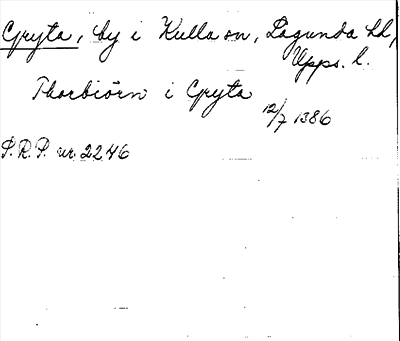 Gryta, by i Kulla sn, Lagunda hd,
Upps. l.
Thorbiörn i Gryta
12/7 1386
S.R.P. nr. 2246